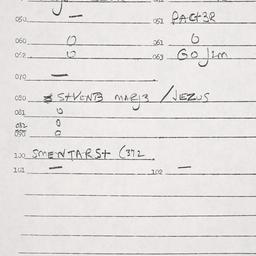 050 — 051 PACT3R
060 0 061 0
062 0 063 GOJIM
070 —
080 S+VCNT3 MARJ3 / JEZUS
081 0
082 0
090 0
100 SMENTARS+ (372
101 — 102 —